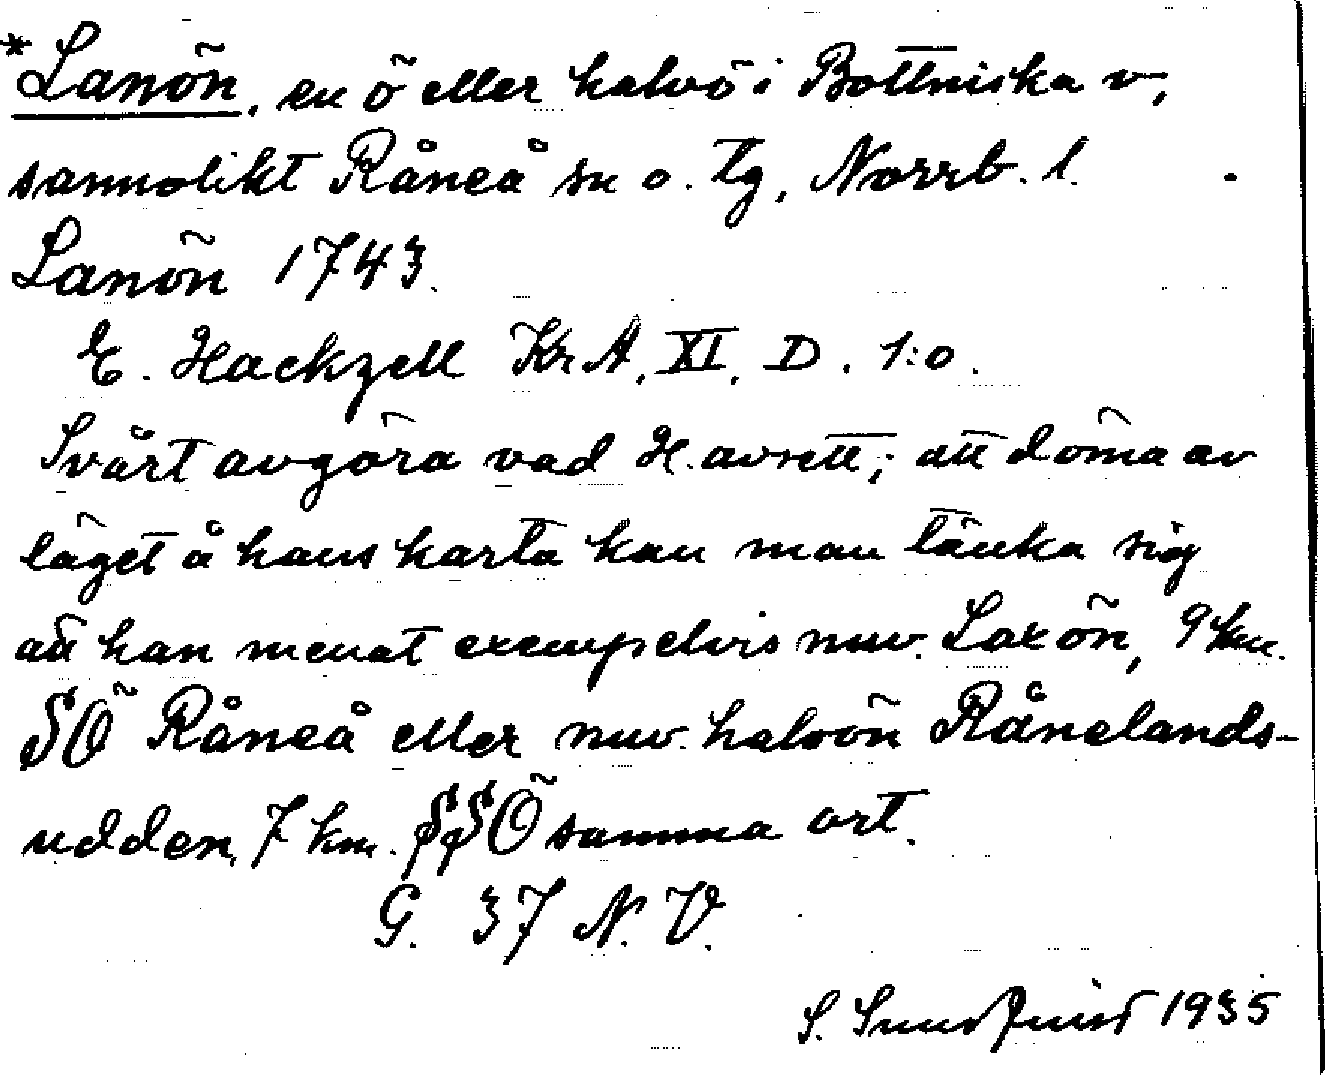 *Lanön, en ö eller halvö i Bottniska v,
sannolikt Råneå sn o. tg, Norrb. l.
Lanön 1743.
E. Hackzell Kr A. XI. D. 1:o.
Svårt avgöra vad H. avsett; att döma av
läget å hans karta kan man tänka sig
att han menat exempelvis nuv. Laxön, 9 km.
SÖ Råneå eller nuv. halvön Rånelands-
udden, 7 km. SSÖ samma ort.
G. 37 N. V.
S. Sundqvist 1935